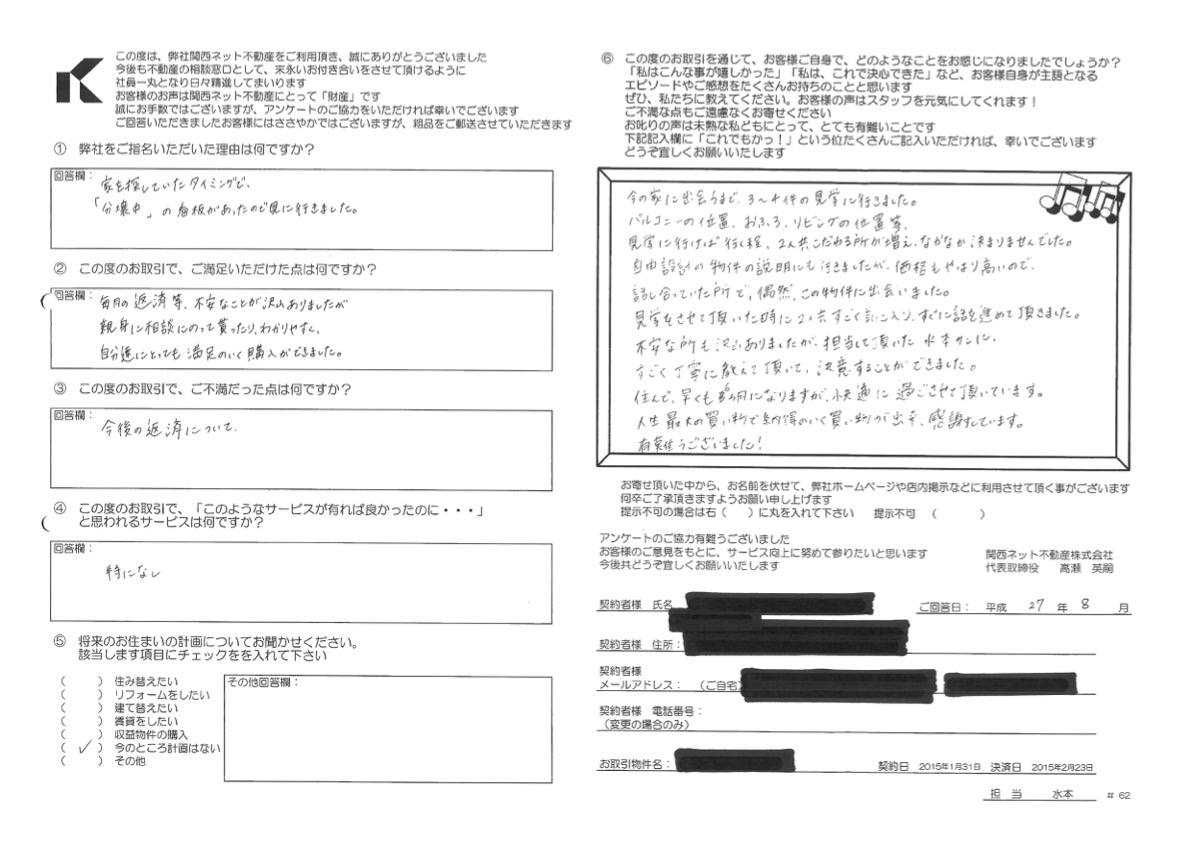 この度は、弊社関西ネット不動産をご利用頂き、誠にありがとうございました
今後も不動産の相談窓口として、末永いお付き合いをさせて頂けるように
社員一丸となり日々精進してまいります
お客様のお声は関西ネット不動産にとって「財産」です
誠にお手数ではございますが、アンケートのご協力をいただければ幸いでございます
ご回答いただきましたお客様にはささやかではございますが、粗品をご郵送させていただきます
① 弊社をご指名いただいた理由は何ですか？
回答欄：
家を探していたタイミングで、
「分壌中」の看板があったので見に行きました。
② この度のお取引で、ご満足いただけた点は何ですか？
回答欄：
毎月の返済等、不安なことが沢山ありましたが
親身に相談にのって貰ったり、わかりやすく、
自分達にとっても満足のいく購入ができました。
③ この度のお取引で、ご不満だった点は何ですか？
回答欄：
今後の返済について.
④ この度のお取引で、「このようなサービスが有れば良かったのに・・・」
と思われるサービスは何ですか？
回答欄：
特になし
⑤ 将来のお住まいの計画についてお聞かせください。
該当します項目にチェックをを入れて下さい
（　　） 住み替えたい
（　　） リフォームをしたい
（　　） 建て替えたい
（　　） 賃貸をしたい
（　　） 収益物件の購入
（ ✓ ） 今のところ計画はない
（　　） その他
その他回答欄：
⑥ この度のお取引を通じて、お客様ご自身で、どのようなことをお感じになりましたでしょうか？
「私はこんな事が嬉しかった」「私は、これで決心できた」など、お客様自身が主語となる
エピソードやご感想をたくさんお持ちのことと思います
ぜひ、私たちに教えてください。お客様の声はスタッフを元気にしてくれます！
ご不満な点もご遠慮なくお寄せください
お叱りの声は未熟な私どもにとって、とても有難いことです
下記記入欄に「これでもかっ！」という位たくさんご記入いただければ、幸いでございます
どうぞ宜しくお願いいたします
今の家に出会うまで、3～4件の見学に行きました。
バルコニーの位置、おふろ、リビングの位置等、
見学に行けば行く程、2人共こだわる所が増え、なかなか決まりませんでした。
自由設計の物件の説明にも行きましたが、価格もやはり高いので、
話し合っていた所で、偶然、この物件に出会いました。
見学をさせて頂いた時に2人共すごく気に入り、すぐに話を進めて頂きました。
不安な所も沢山ありましたが、担当して頂いた水本サンに、
すごく丁寧に教えて頂いて、決意することができました。
住んで、早くも6ヶ月になりますが、快適に過ごさせて頂いています。
人生最大の買い物で納得のいく買い物が出来、感謝しています。
有難うございました！
お寄せ頂いた中から、お名前を伏せて、弊社ホームページや店内掲示などに利用させて頂く事がございます
何卒ご了承頂きますようお願い申し上げます
提示不可の場合は右（　　）に丸を入れて下さい　提示不可　（　　　）
アンケートのご協力有難うございました
お客様のご意見をもとに、サービス向上に努めて参りたいと思います
今後共どうぞ宜しくお願いいたします
関西ネット不動産株式会社
代表取締役　高瀬　英嗣
契約者様　氏名
ご回答日：　平成　27　年　8　月
契約者様　住所：
契約者様
メールアドレス：　（ご自宅）
契約者様　電話番号：
（変更の場合のみ）
お取引物件名：
契約日　2015年1月31日　決済日　2015年2月23日
担　当　水本　# 62